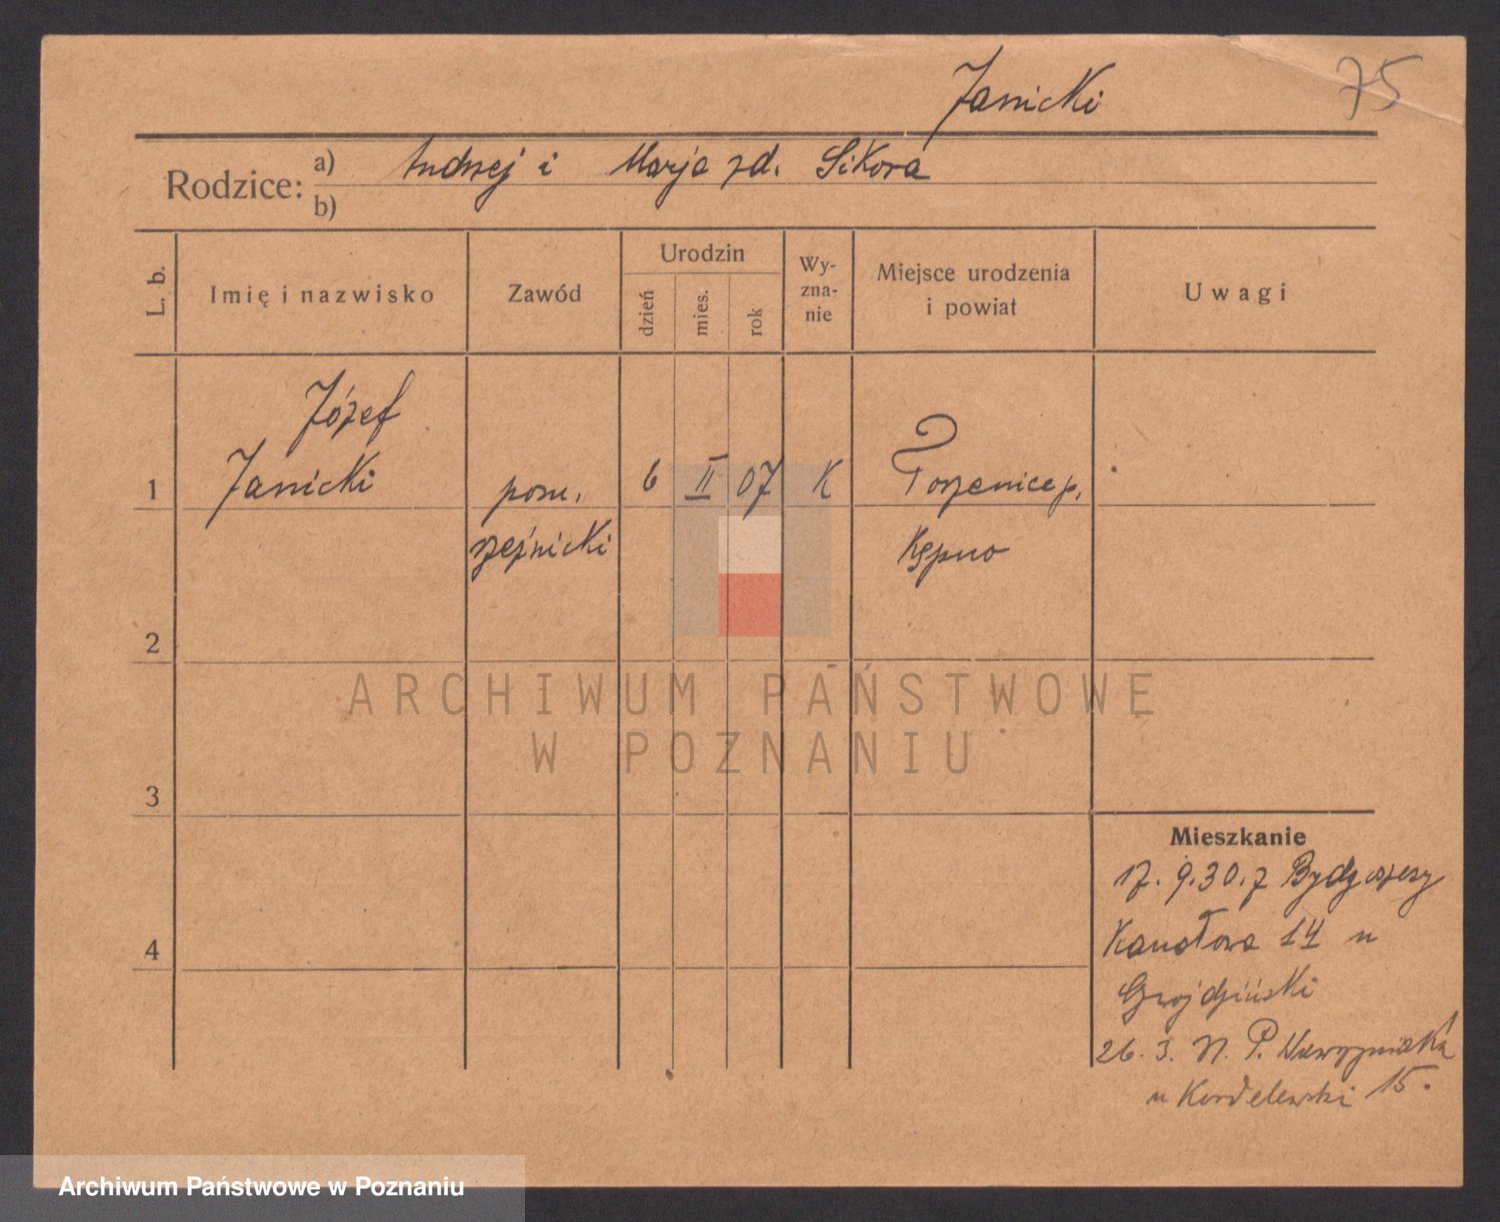 Janicki
75
Rodzice:
a) Andrzej i Marja zd. Sikora
b)
L. b.
Imię i nazwisko
Zawód
Urodzin
dzień
mies.
rok
Wy-
zna-
nie
Miejsce urodzenia
i powiat
Uwagi
Józef
1 Janicki pom. 6 II 07 K Torzenice p.
rzeźnicki Kępno
2
3
4
Mieszkanie
17. 9. 30. z Bydgoszczy
Kanałowa 14 u
Gwojdziński
26. 3. N. P.
u Kordelewski 15.
ARCHIWUM PAŃSTWOWE
W POZNANIU
Archiwum Państwowe w Poznaniu